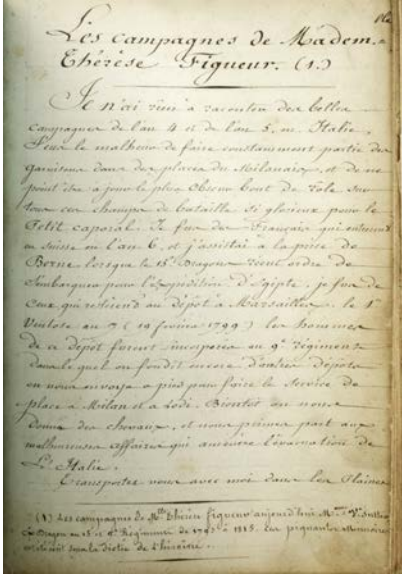 Les campagnes de Madem.=
Thérèse Figueur. (1.)
Je n'ai rien à raconter des belles
campagnes de l'an 4 et de l'an 5, en Italie.
J'eus le malheur de faire constamment partie des
garnisons dans des places du Milanais, et de ne
point être à jouer le plus obscur bout de rôle sur
tous ces champs de bataille si glorieux pour le
Petit caporal. Je fus des Français qui entrèrent
en Suisse en l'an 6, et j'assistai à la prise de
Berne lorsque le 15e Dragons reçut ordre de
s'embarquer pour l'expédition d'égipte, je fus de
ceux qui restèrent au dépôt à Marseille. le 1er
Ventose an 7 (19 février 1799) les hommes
de ce dépôt furent incorporés au 9e régiment
dans le quel on fondit encore d'autres dépôts
on nous envoya à pied pour faire le service de
place à Milan et à Lodi. Bientot on nous
donna des chevaux, et nous primes part aux
malheureuses affaires qui amenèrent l'évacuation de
L'Italie.
Transportez vous avec moi dans les Plaines
(1) Les campagnes de Mlle Thérèse figueur aujourd'hui Mme Ve Sutter
ex Dragon aux 15 et 9e Régiments de 1793 à 1815. Ces piquantes Mémoires
sous la dictée de l'héroïne.